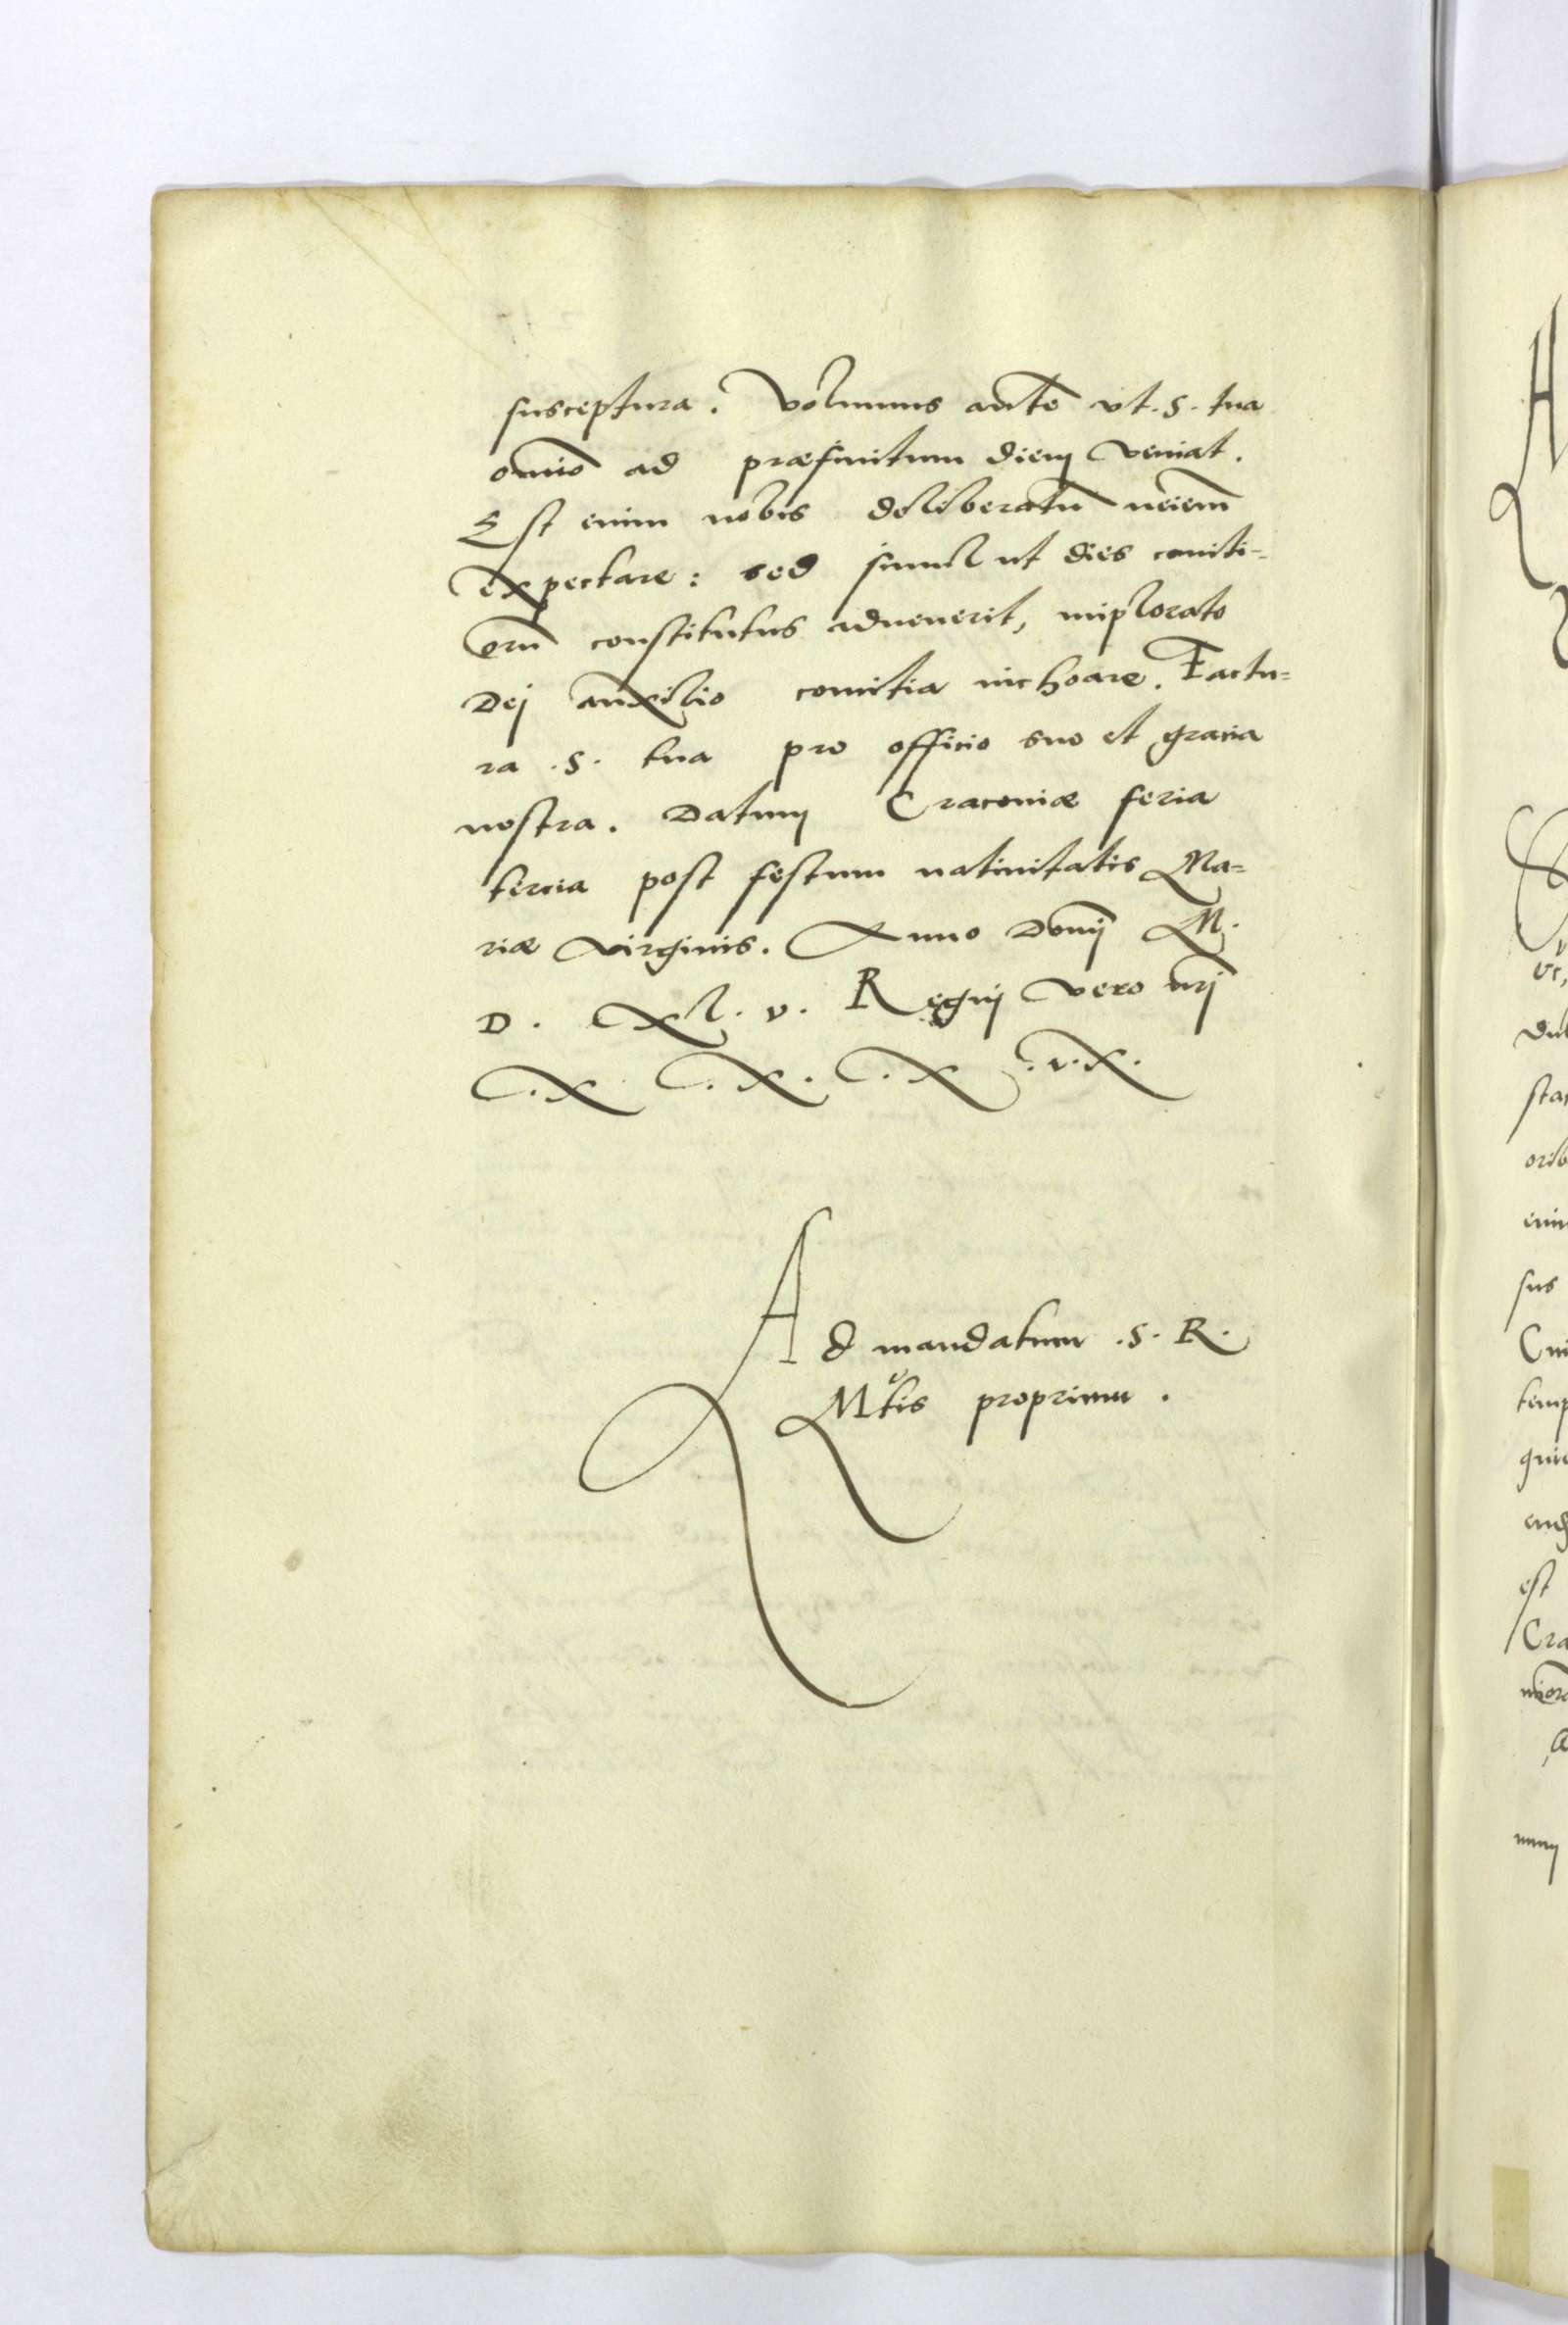 susceptura. Volumus aute͂ vt .S. tua
omio͂ ad præfinitum diem veniat.
Est enim nobis deliberatu͂ neiem͂
expectare: sed simul ut dies comiti-
oru͂ constitutus aduenerit, implorato
Dej auxilio comitia inchoare. Factu-
ra .S. tua pro officio suo et gracia
nostra. Datum Cracouiæ feria
tercia post festum natiuitatis Ma-
riæ virginis. Anno Domj͂ M.
D. Xl. v. Regnj vero nrj͂
X. X. X. .v.X.
Ad mandatum .S. R.
Mtis proprium.